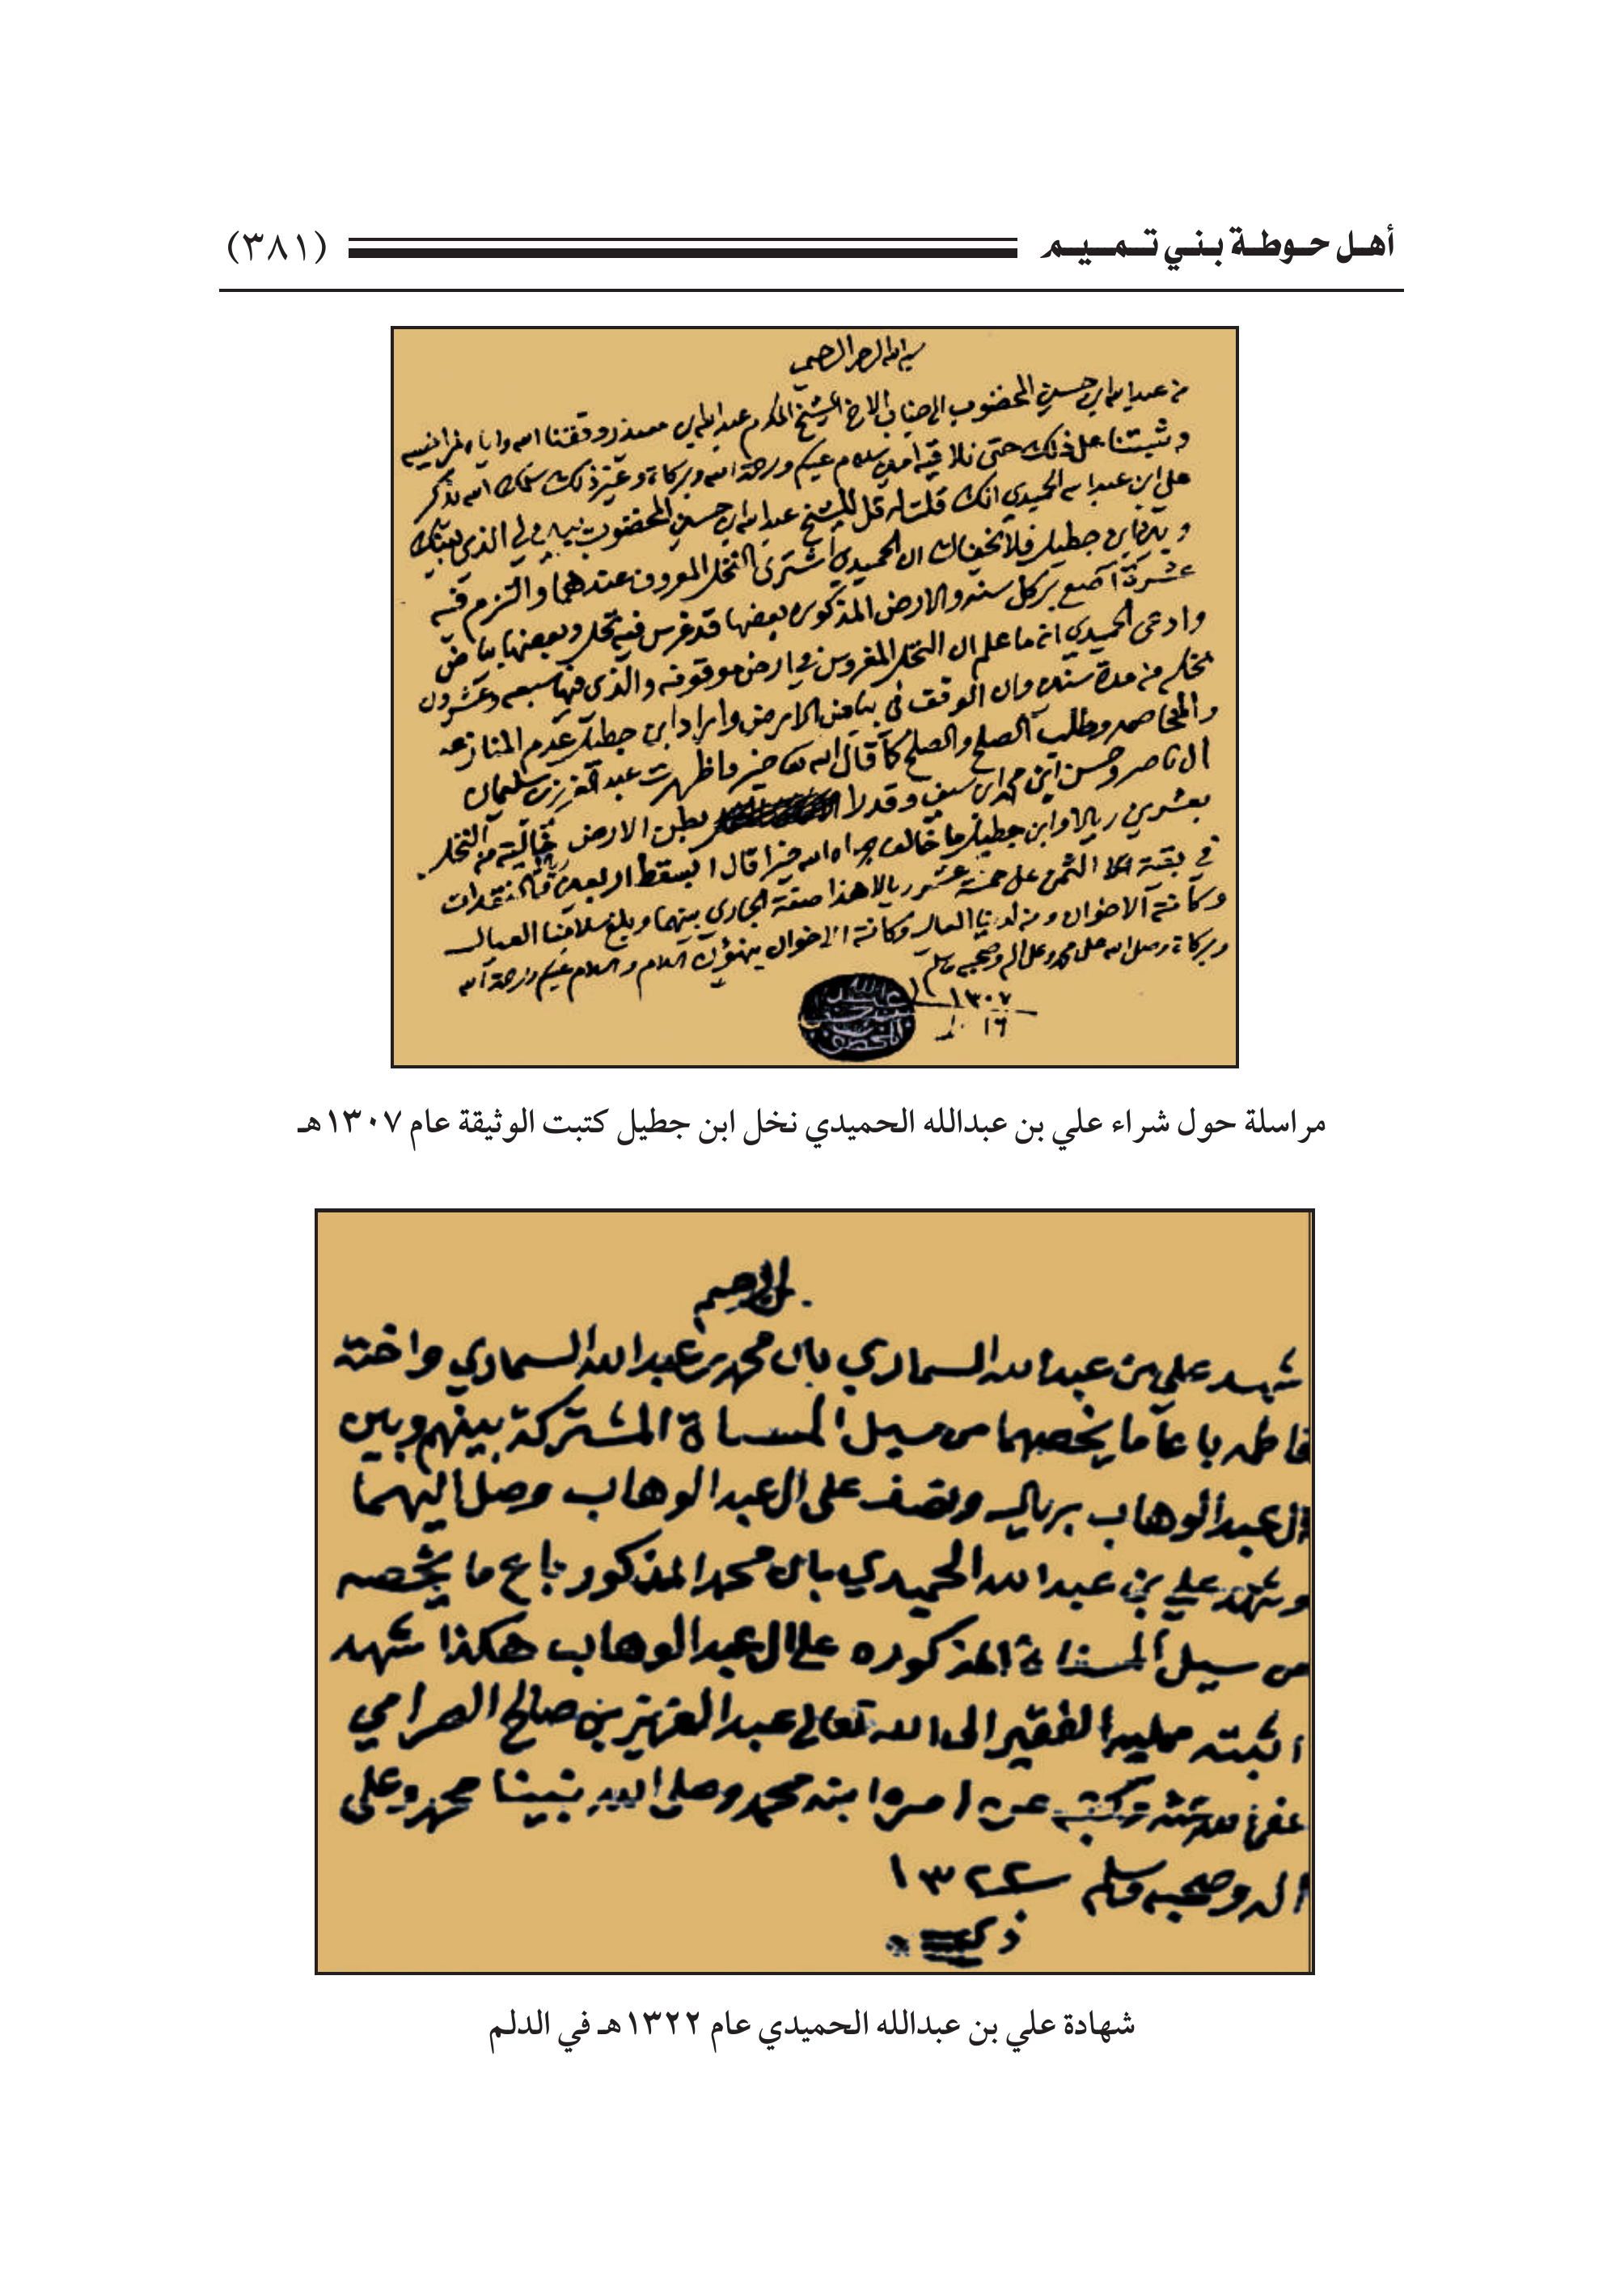 أهل حوطة بني تميم (٣٨١)
من عبدالله ابن حسين المخضوب الى جناب الاخ الشيخ المكرم عبدالله ابن وفقنا الله واياه
وثبتنا على ذلك حتى نلاقيه امين سلام عليكم ورحمة الله وبركاته وغير ذلك سلمك الله يذكر
علي ابن عبدالله الحميدي انك قلت له قل للشيخ عبدالله ابن حسين المخضوب يبين لي الذي بينك
وبين ابن جطيل فلا يخفاك ان الحميدي اشترى النخل المعروف عندهما والتزم فيه
عشرة آصع بر كل سنه والارض المذكوره بعضها قد غرس فيه نخل وبعضها بياض
وادعى الحميدي انه ما علم ان النخل المغروس في ارض موقوفه والذي فيها سبعه وعشرون
نخله من مدة سنين وان الوقف في بياض الارض واراد ابن جطيل عدم المنازعه
والمخاصمه وطلب الصلح والصلح كما قال الله خير واظهرت عبد العزيز بن سليمان
ال ناصر وحسن ابن محمد ابن سيف وقدلا بطن الارض خاليته من النخل
بعشرين ريالا وابن جطيل ما خالف جزاه الله خيرا قال اسقط اربعين ريال
في بقية الثمن على خمسة عشر ريالا هذا صفة الجاري بينهما وبلغ سلامنا العيال
وكافة الاخوان ومن لدينا العيال وكافة الاخوان ينهؤن السلام والسلام عليكم ورحمة الله
وبركاته وصلى الله على محمد وعلى اله وصحبه وسلم
١٣٠٧
١٦
مراسلة حول شراء علي بن عبدالله الحميدي نخل ابن جطيل كتبت الوثيقة عام ١٣٠٧هـ
شهد علي بن عبدالله السماري بان محمد بن عبدالله السماري واخته
فاطمه باعا ما يخصهما من سيل المسناة المشتركة بينهم وبين
ال عبدالوهاب بريال ونصف على ال عبدالوهاب وصل اليهما
وشهد علي بن عبدالله الحميدي بان محمد المذكور باع ما يخصه
من سيل المسناة المذكوره على ال عبدالوهاب هكذا شهد
اثبته ممليه الفقير الى الله تعالى عبدالعزيز بن صالح الصرامي
وكتبه عن امره ابنه محمد وصلى الله نبينا محمد وعلى
اله وصحبه وسلم ١٣٢٢
شهادة علي بن عبدالله الحميدي عام ١٣٢٢هـ في الدلم